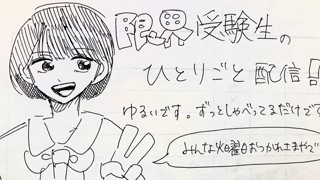 限界受験生の
ひとりごと配信!!
ゆるいです。ずっとしゃべってるだけです
みんな火曜日おつかれさまやで